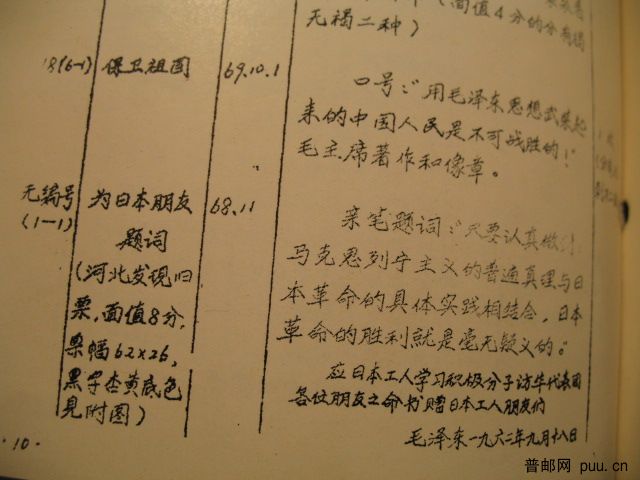 (面值4分的分有褐
无褐二种)
18(6-1) 保卫祖国 69.10.1
口号:"用毛泽东思想武装起
来的中国人民是不可战胜的!"
毛主席著作和像章。
无编号
(1-1)
为日本朋友 68.11
题词
(河北发现旧
票,面值8分,
票幅62×26,
黑字杏黄底色
见附图)
亲笔题词:"只要认真做到
马克思列宁主义的普遍真理与日
本革命的具体实践相结合,日本
革命的胜利就是毫无疑义的。"
应日本工人学习积极分子访华代表团
各位朋友之命书赠日本工人朋友们
毛泽东一九六二年九月十八日
·10·
普邮网 puu.cn